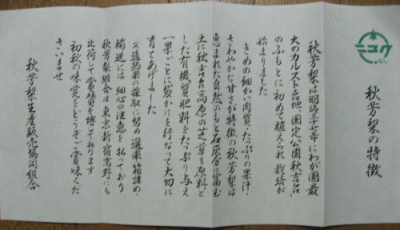 ニユウ
なし
秋芳梨の特徴
秋芳梨は明治三十七年にわが国最
大のカルスト台地「国定公園秋吉台」
のふもとに初めて植えられ栽培が
始まりました
きめの細かい肉質、たっぷりの果汁・
さわやかな甘さが特徴の秋芳梨は
恵まれた自然のもと石灰分に富む
土に秋吉台高原の芝草を原料と
した有機質肥料をたっぷり与え
一果ごとに袋かけを行なって大切に
育てあげました
又適熟果の採取に努め選果、箱詰め・
輸送には細心の注意を払っており
秋芳梨組合は東京新宿高野にも
出荷して賞讃を博しております
初秋の味覚をどうぞご賞味くだ
さいませ
秋芳梨生産販売協同組合